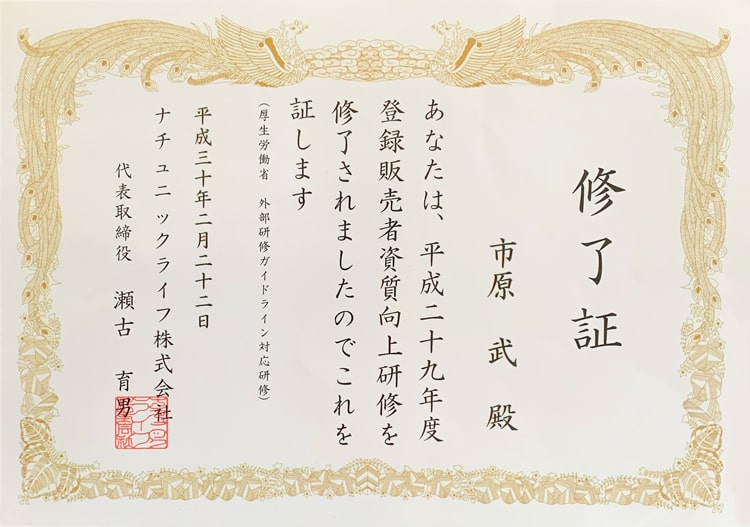 修了証
市原 武 殿
あなたは、平成二十九年度
登録販売者資質向上研修を
修了されましたのでこれを
証します
（厚生労働省 外部研修ガイドライン対応研修）
平成三十年二月二十二日
ナチュニックライフ株式会社
代表取締役 瀬古 育男